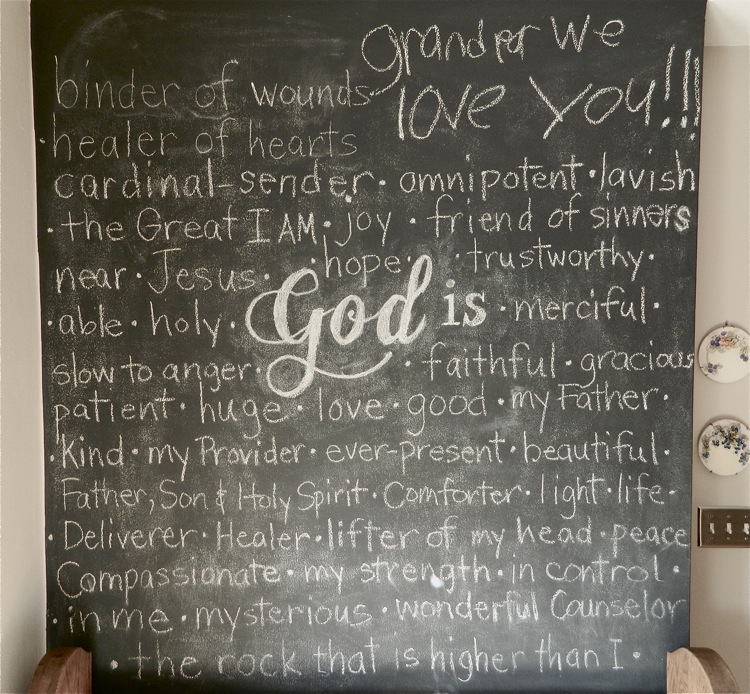 grandpar We
love You!!!
binder of wounds
· healer of hearts
cardinal-sender · omnipotent · lavish
· the Great I AM · joy · friend of sinners
near · Jesus · hope · · trustworthy ·
God is
· able · holy · · merciful ·
slow to anger · · faithful · gracious
patient · huge · love · good · my Father ·
· Kind · my Provider · ever-present · beautiful ·
Father, Son & Holy Spirit · Comforter · light · life ·
· Deliverer · Healer · lifter of my head · peace
Compassionate · my strength · in control ·
· in me · mysterious · wonderful Counselor
· the rock that is higher than I ·